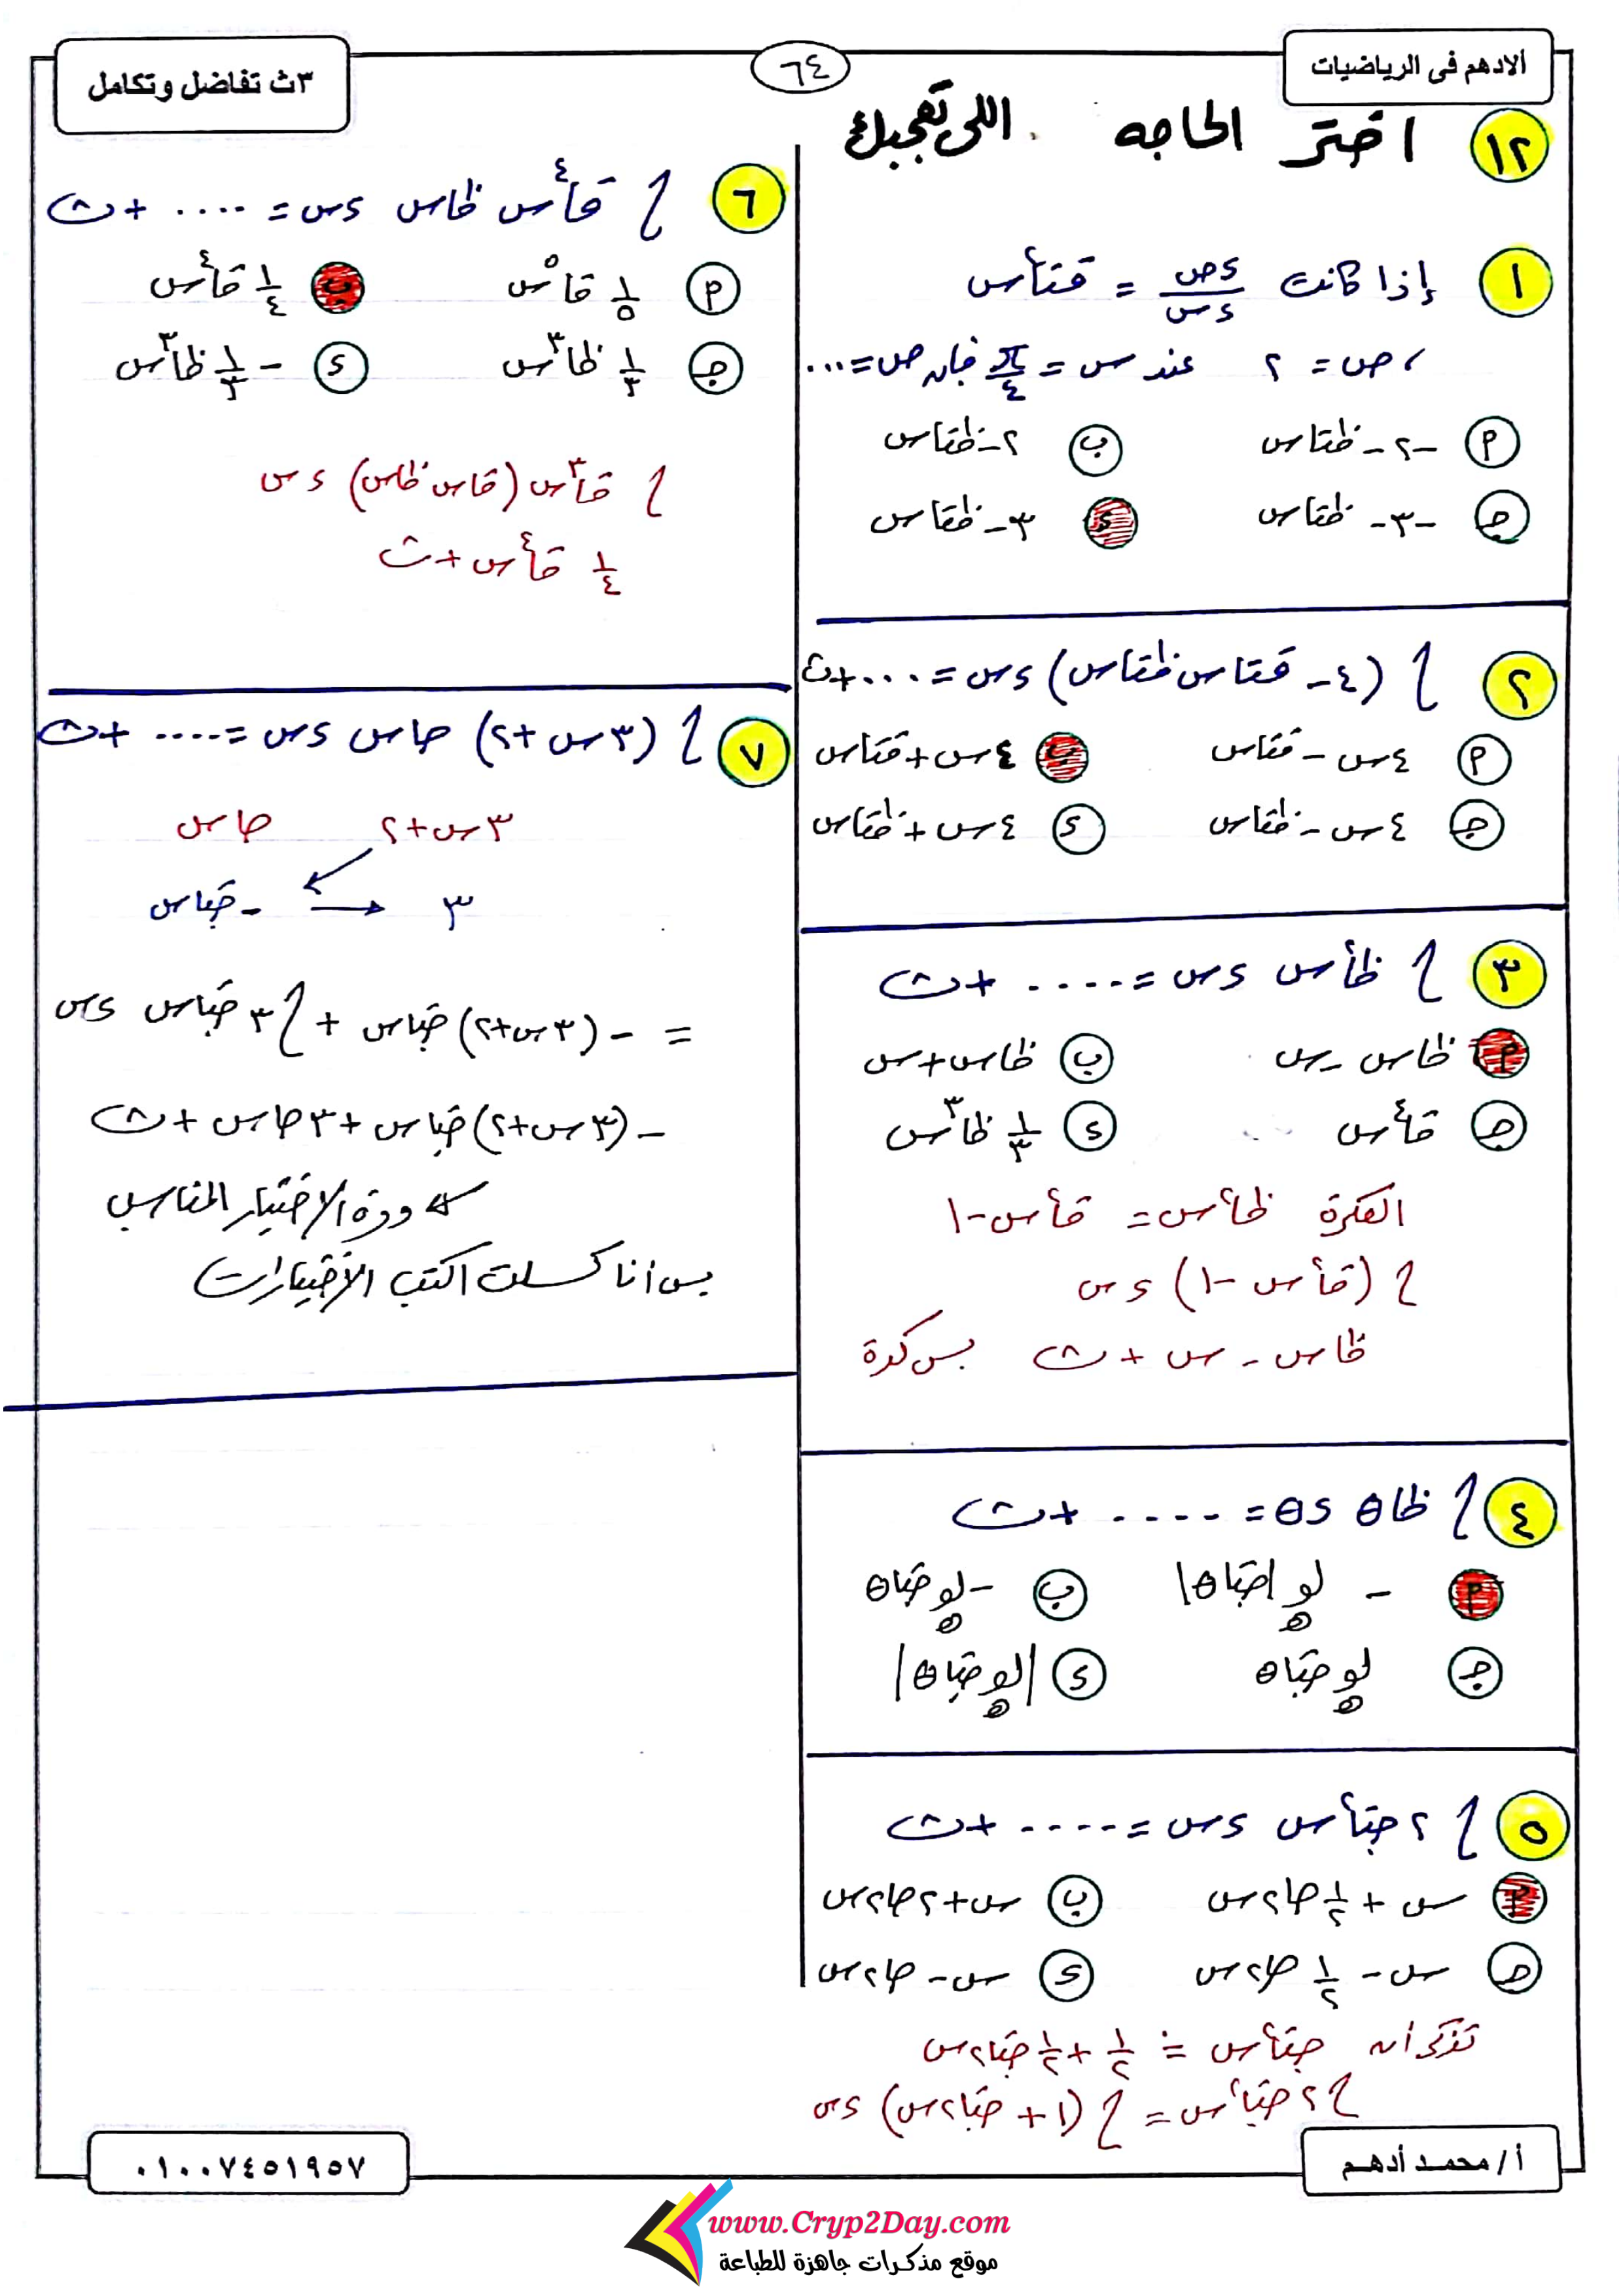 ألادهم فى الرياضيات
٦٤
٣ث تفاضل وتكامل
١٢ اختر الحاجه اللى تعجبك
١ إذا كانت ءص/ءس = قتا²س
، ص = ٢ عند س = π/٤ فإن ص = ...
م -٢- ظتاس ب ٢- ظتاس
جـ -٣- ظتاس ء ٣- ظتاس
٢ ∫ (٤- قتاس ظتاس) ءس = ... + ث
م ٤س - قتاس ب ٤س + قتاس
جـ ٤س - ظتاس ء ٤س + ظتاس
٣ ∫ ظا²س ءس = .... + ث
م ظاس - س ب ظاس + س
جـ قا⁴س ء ١/٣ ظا³س
الفكرة ظا²س = قا²س - ١
∫ (قا²س - ١) ءس
ظاس - س + ث بس كدة
٤ ∫ ظاθ ءθ = .... + ث
م - لوهـ |جتاθ| ب - لوهـ جتاθ
جـ لوهـ جتاθ ء |لوهـ جتاθ|
٥ ∫ ٢جتا²س ءس = .... + ث
م س + ١/٢ جا٢س ب س + ٢جا٢س
جـ س - ١/٢ جا٢س ء س - جا٢س
تذكر أن جتا²س = ١/٢ + ١/٢ جتا٢س
∫ ٢جتا²س = ∫ (١ + جتا٢س) ءس
٦ ∫ قا⁴س ظاس ءس = .... + ث
م ١/٥ قا⁵س ب ١/٤ قا⁴س
جـ ١/٣ ظا³س ء - ١/٣ ظا³س
∫ قا³س (قاس ظاس) ءس
١/٤ قا⁴س + ث
٧ ∫ (٣س + ٢) جاس ءس = .... + ث
٣س + ٢ جاس
٣ - جتاس
= - (٣س + ٢) جتاس + ∫ ٣ جتاس ءس
- (٣س + ٢) جتاس + ٣جاس + ث
وده الاختيار المناسب
بس أنا كسلت اكتب الاختيارات
أ / محمد أدهم
٠١٠٠٧٤٥١٩٥٧
www.Cryp2Day.com
موقع مذكرات جاهزة للطباعة